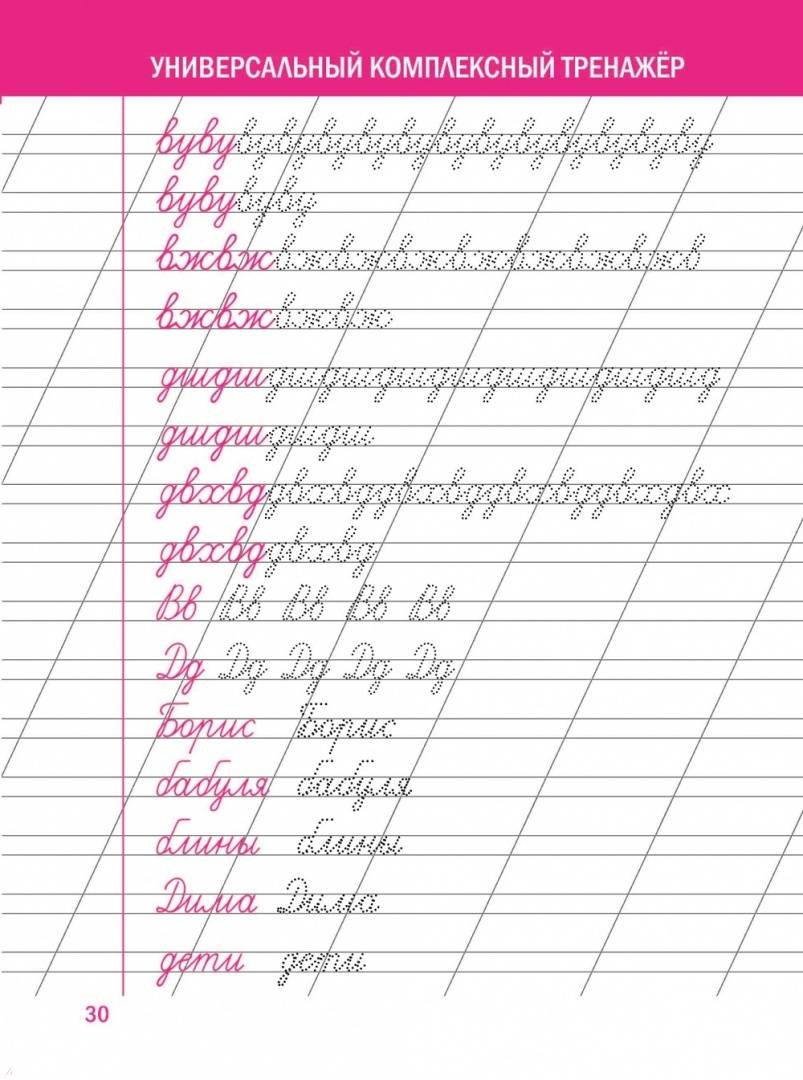 УНИВЕРСАЛЬНЫЙ КОМПЛЕКСНЫЙ ТРЕНАЖЁР
вувувувувувувувувувувувувуву
вувувуву
вжвжвжвжвжвжвжвжвжв
вжвжвжвж
дшдшдшдшдшдшдшдшдшдшд
дшдшдшдш
двхвддвхвддвхвддвхвддвхдвх
двхвддвхвд
Вв Вв Вв Вв Вв
Дд Дд Дд Дд Дд
Борис Борис
бабуля бабуля
блины блины
Дима Дима
дети дети
30